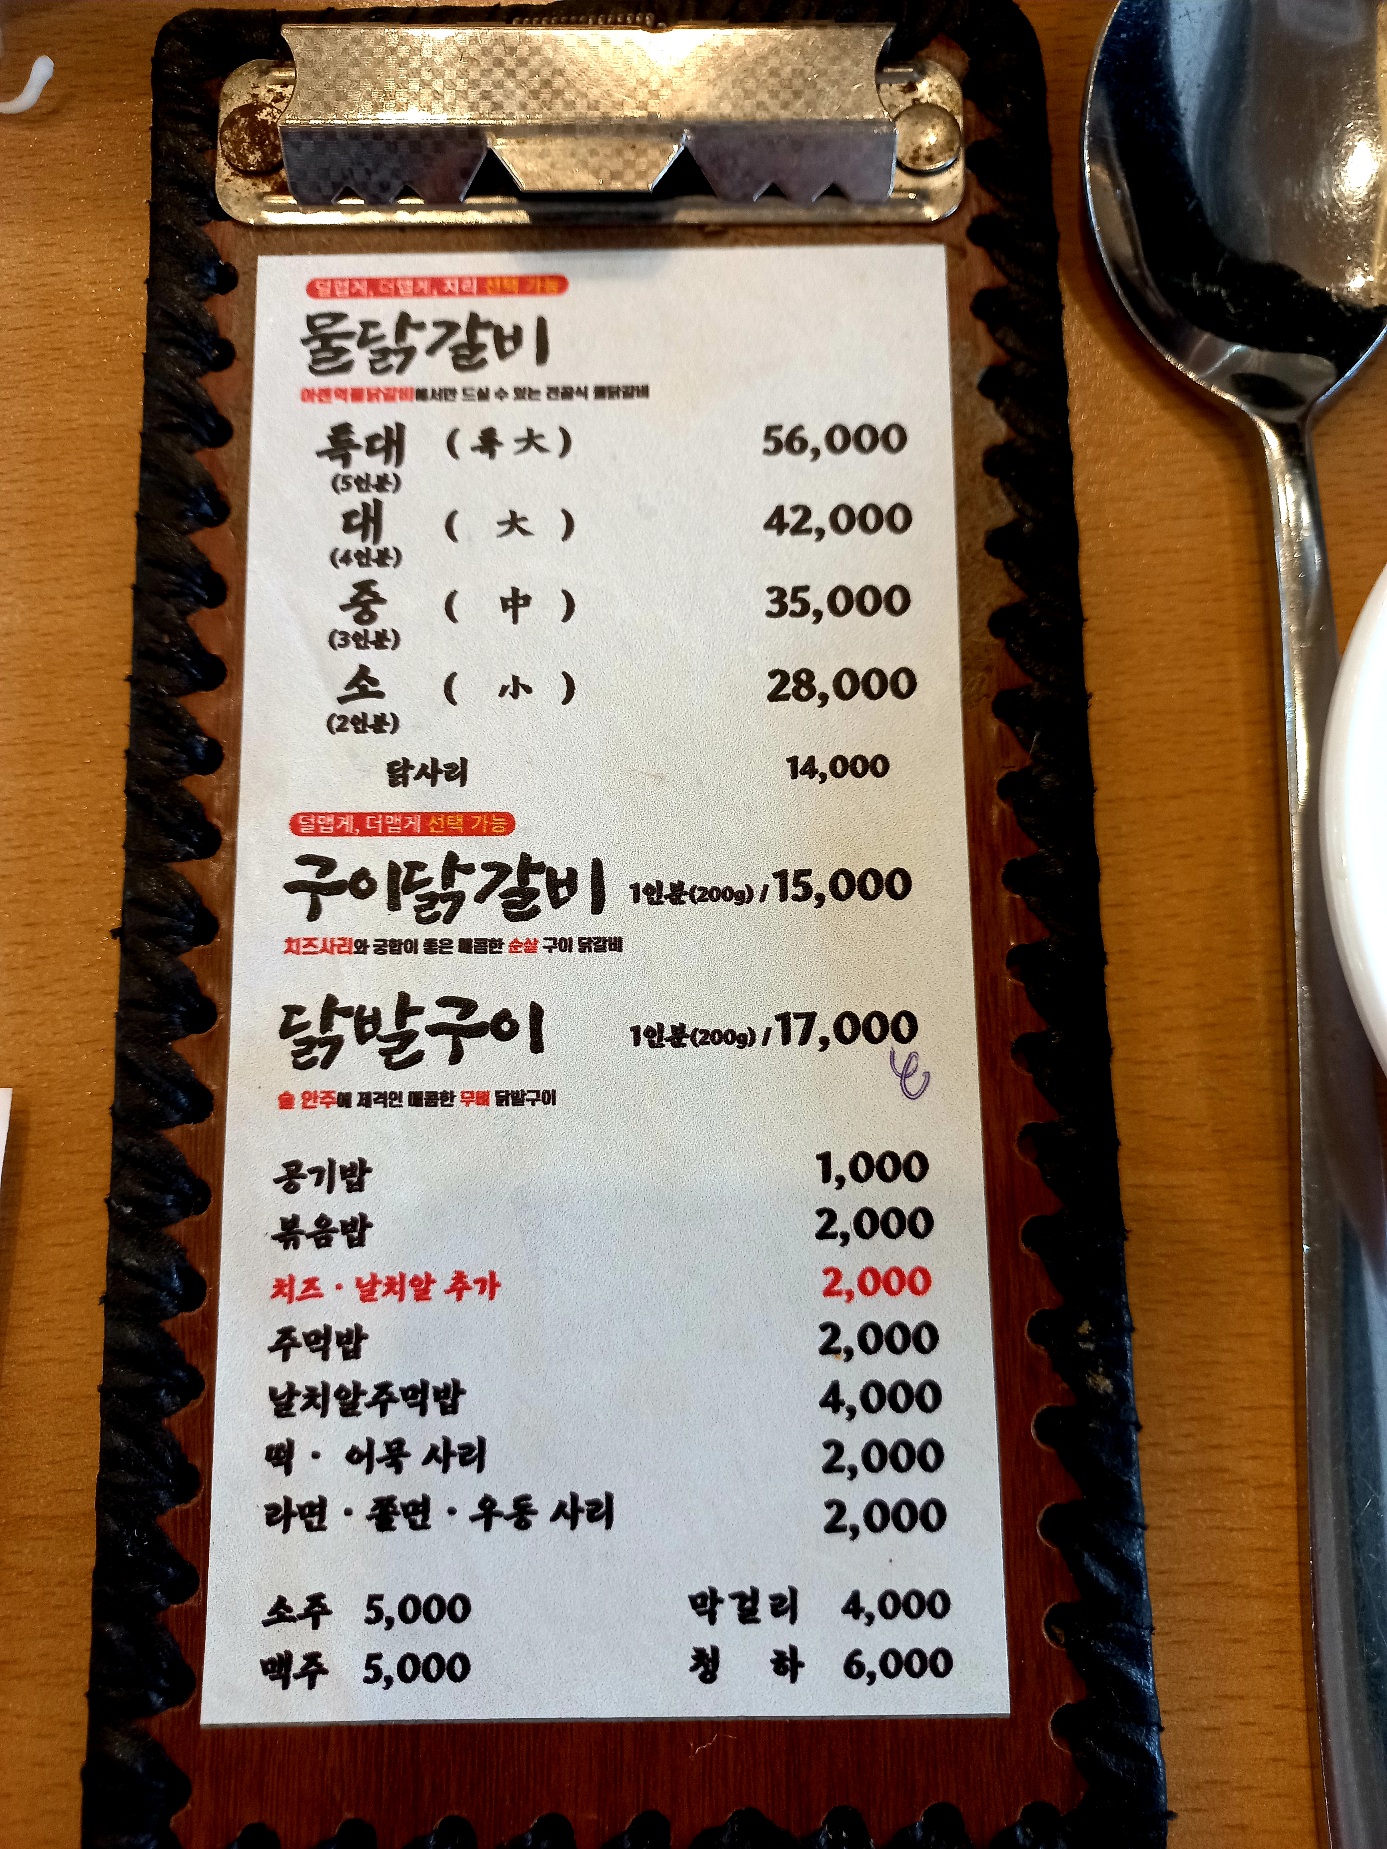 덜맵게, 더맵게, 지리 선택 가능
물닭갈비
물닭갈비에서만 드실 수 있는 전골식 물닭갈비
특대 (특大) 56,000
(5인분)
대 ( 大 ) 42,000
(4인분)
중 ( 中 ) 35,000
(3인분)
소 ( 小 ) 28,000
(2인분)
닭사리 14,000
덜맵게, 더맵게 선택 가능
구이닭갈비 1인분(200g) / 15,000
치즈사리와 궁합이 좋은 매콤한 순살 구이 닭갈비
닭발구이 1인분(200g) / 17,000
술 안주에 제격인 매콤한 무뼈 닭발구이
공기밥 1,000
볶음밥 2,000
치즈 · 날치알 추가 2,000
주먹밥 2,000
날치알주먹밥 4,000
떡 · 어묵 사리 2,000
라면 · 쫄면 · 우동 사리 2,000
소주 5,000 막걸리 4,000
맥주 5,000 청 하 6,000